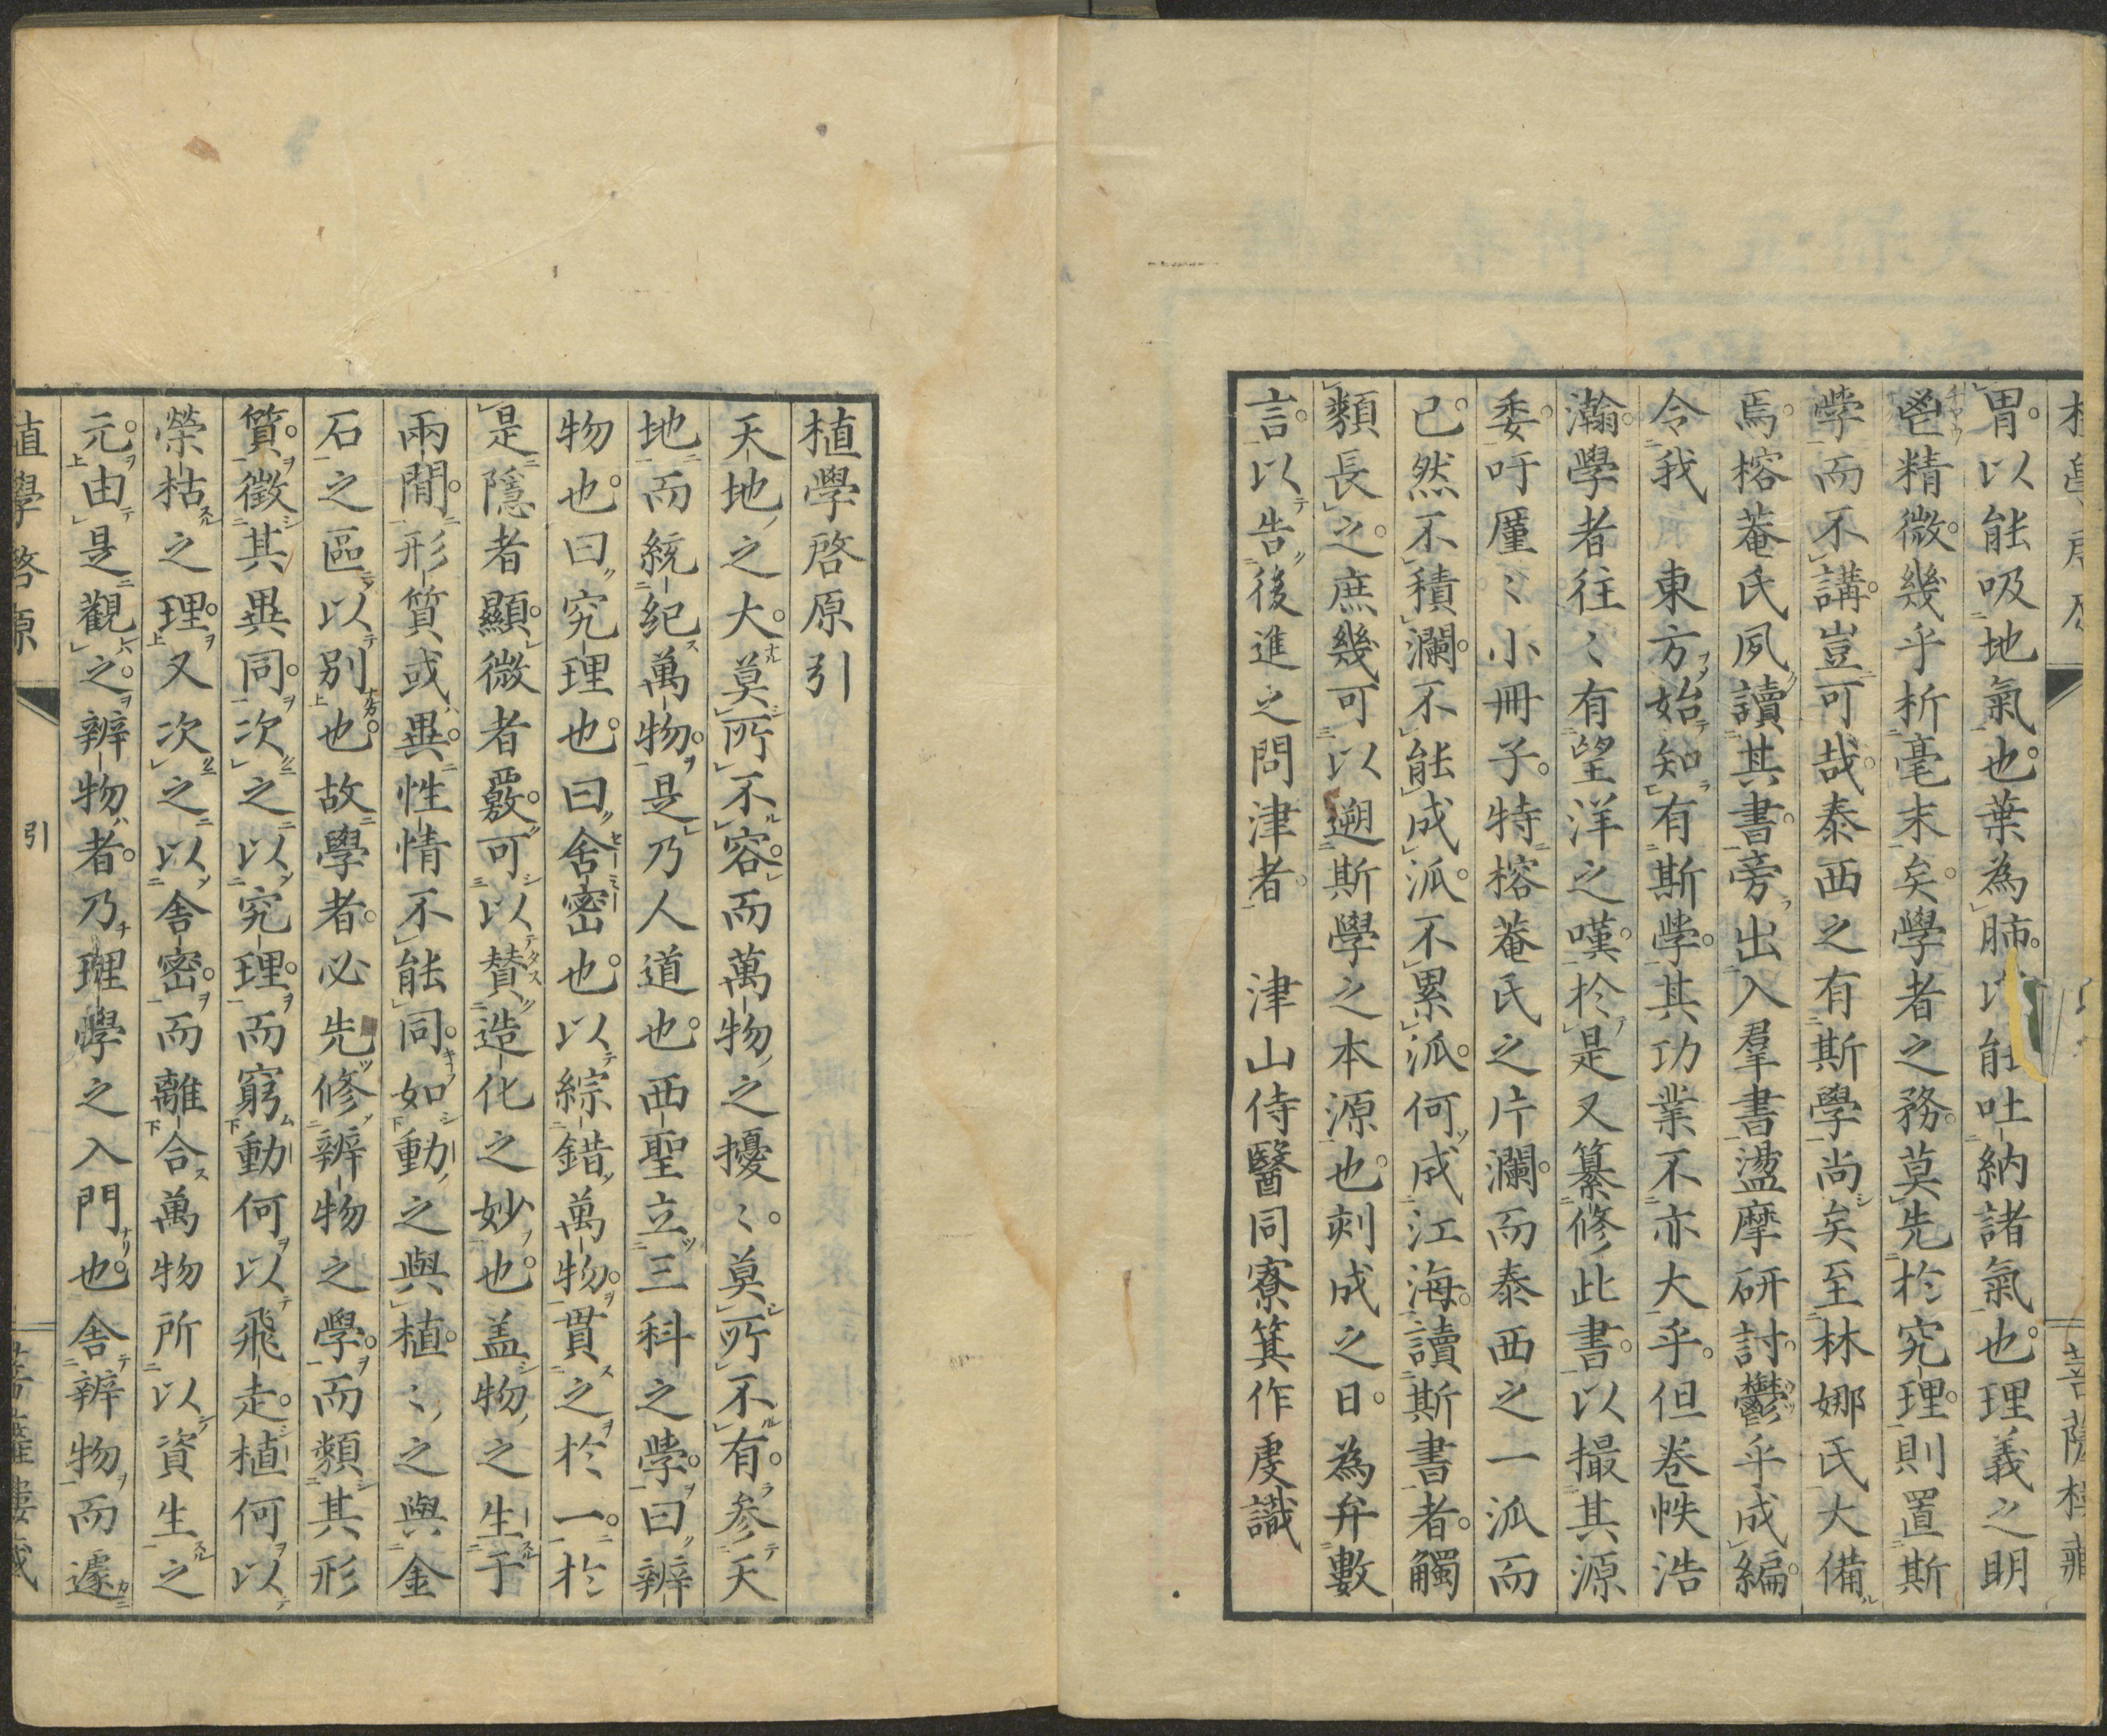 胃以能吸地氣也葉為肺以能吐納諸氣也理義之明
鬯精微幾乎析毫末矣學者之務莫先於究理則置斯
學而不講豈可哉泰西之有斯學尚矣至林娜氏大備
焉榕菴氏夙讀其書旁出入羣書盪摩研討鬱乎成編
令我 東方始知有斯學其功業不亦大乎但卷帙浩
瀚學者往〻有望洋之嘆於是又纂修此書以撮其源
委吁厪〻小冊子特榕菴氏之片瀾而泰西之一泒而
已然不積瀾不能成泒不累泒何成江海讀斯書者觸
類長之庶幾可以遡斯學之本源也刻成之日為弁數
言以告後進之問津者 津山侍醫同寮箕作虔識
植學啓原引
天地之大莫所不容而萬物之擾〻莫所不有参天
地而統紀萬物是乃人道也西聖立三科之學曰辨
物也曰究理也曰舎密也以綜錯萬物貫之於一於
是隱者顯微者覈可以賛造化之妙也盖物之生于
兩間形質或異性情不能同如動之與植〻之與金
石之區以別也故學者必先修辨物之學而類其形
質徵其異同次之以究理而窮動何以飛走植何以
榮枯之理又次之以舎密而離合萬物所以資生之
元由是觀之辨物者乃理學之入門也舎辨物而遽
植學啓原
引